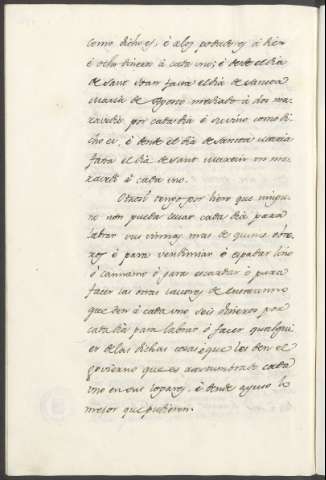 como dicho es, é a los podadores á diez
é ocho dineros á cada uno; é desde el dia
de Sant Joan fasta el dia de Sancta
Maria de Agosto mediado á dos ma-
ravedis por cada dia é su vino como di-
cho es, é desde el dia de Sancta Maria
fasta el dia de Sant Martin un ma-
ravedi á cada uno.
Otrosi tengo por bien que ningu-
no non pueda sacar cada dia para
labrar sus viñas mas de quince obre-
ros é para vendimiar é espadar lino
é cannamo é para escardar é para
facer las otras lavores de
que den á cada uno seis dineros por
cada dia para labrar é facer qualqui-
er de las dichas cosas é que les den el
govierno que es acostumbrado cada
uno en sus logares, é dende ayuso lo
mejor que pudieren.